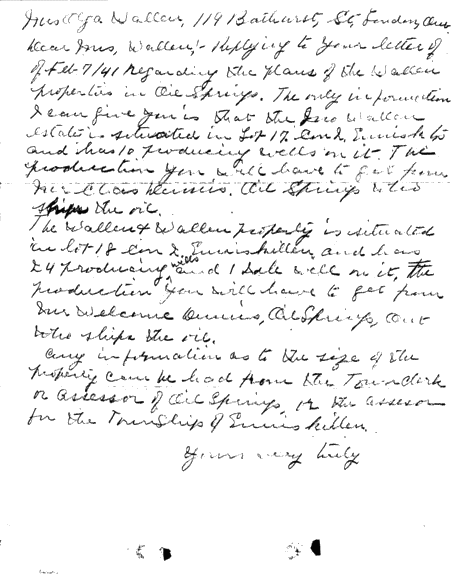 Mrs Olga Wallen, 119 Bathurst, St, London, Ont
Dear Mrs, Wallen,- Replying to Your letter of
of Feb 7/41 Regarding the Plans of the Wallen
properties in Oil Springs. The only information
I can give You is that the Jno Wallen
estate is situated in Lot 17 Con 2, Ennisk
and has 10 producing wells on it. The
production You will have to get from
Mr Chas Oil Springs who
ships the oil.
The Wallen & Wallen property is situated
in lot 18 Con 2, Enniskillen and has
24 producing wells and 1 well on it, the
production You will have to get from
Mr Welcome Annis, Oil Springs, Ont
Who ships the oil.
Any information as to the size of the
property can be had from the Town clerk
or assessor of Oil Springs, or the assesor
for the Township of Enniskillen.
Yours very truly